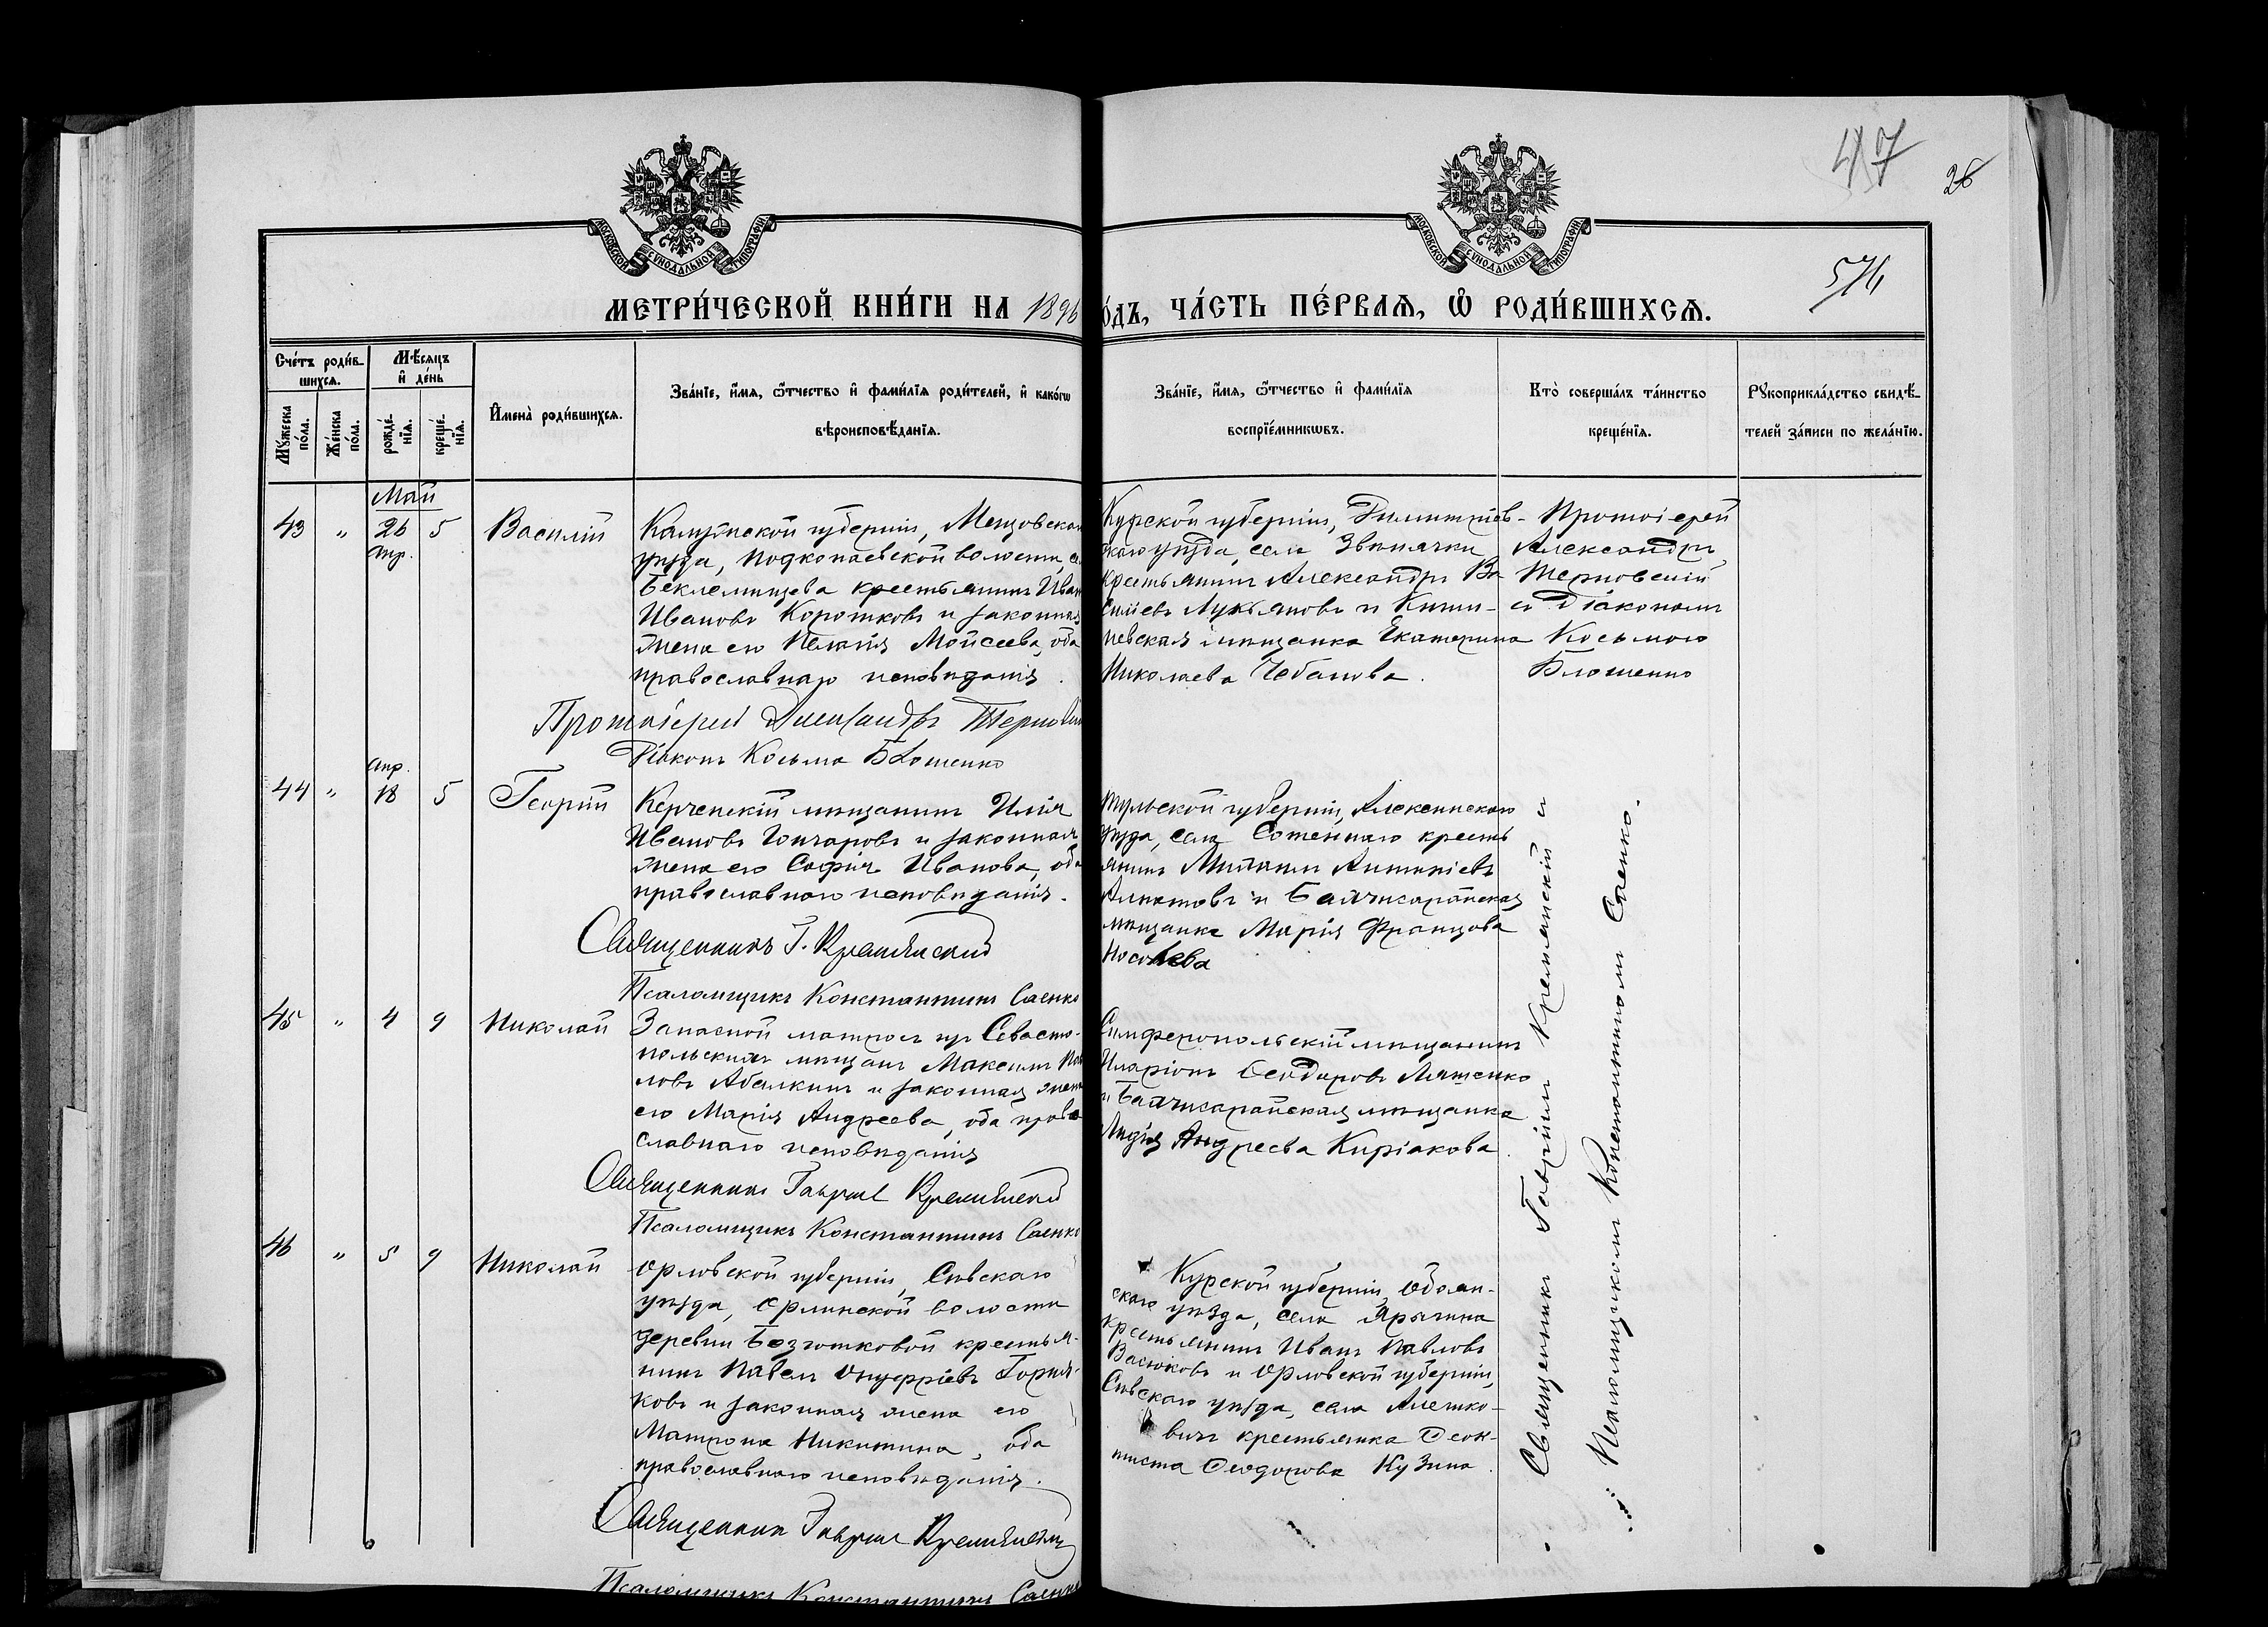 47
26
574
МОСКОВСКОЙ СѴНОДАЛЬНОЙ ТИПОГРАФІИ
МОСКОВСКОЙ СѴНОДАЛЬНОЙ ТИПОГРАФІИ
МЕТРИ́ЧЕСКОЙ КНИ́ГИ НА 1896
О́ДЪ, ЧА́СТЬ ПЕ́РВАѦ, Ѡ҆ РОДИ́ВШИХСѦ.
Сче́тъ роди́в-
шихсѧ.
Мꙋ́жеска по́ла.
Же́нска по́ла.
Мѣ́сѧцъ
и҆ де́нь
рожде́-нїѧ.
креще́-нїѧ.
И҆мена̀ роди́вшихсѧ.
Зва́нїе, и҆́мѧ, ѻ҆́тчество и҆ фами́лїѧ роди́телей, и҆ како́гѡ
вѣроисповѣ́данїѧ.
Зва́нїе, и҆́мѧ, ѻ҆́тчество и҆ фами́лїѧ
воспрїе́мникѡвъ.
Кто̀ соверша́лъ та́инство
креще́нїѧ.
Рꙋкоприкла́дство свидѣ́-
телей за́писи по жела́нїю.
Май
43 " 26 5 Василій
Апр.
Калужской губерніи, Мещовскаго
уѣзда, Подкопаевской волости, с.
Беклемищева крестьянинъ Иванъ
Ивановъ Коротковъ и законная
жена его Пелагія Моисеева, оба
православнаго исповѣданія.
Протоіерей Александръ Терновскій
Діаконъ Косьма Блошенко
Курской губерніи, Димитріев-
скаго уѣзда, села Звенячки
крестьянинъ Александръ Ва-
силіевъ Лукьяновъ и Киши-
невская мѣщанка Екатерина
Николаева Чебанова.
Протоіерей
Александръ
Терновскій
съ Діакономъ
Косьмою
Блошенко
Апр.
44 " 18 5 Георгій
Керченскій мѣщанинъ Илія
Ивановъ Гончаровъ и законная
жена его Софія Иванова, оба
православнаго исповѣданія.
Священникъ Г. Кремянскій
Псаломщикъ Константинъ Саенко
Тульской губерніи, Алексинскаго
уѣзда, села Сотеннаго кресть
янинъ Михаилъ
и Бахчисарайская
мѣщанка Марія Францова
45 " 4 9 Николай
Запасной матросъ изъ Севасто-
польскихъ мѣщанъ Максимъ Пав
ловъ Абалкинъ и законная жена
его Марія Андреева, оба право
славнаго исповѣданія
Священникъ Гавріилъ Кремянскій
Псаломщикъ Константинъ Саенко
Симферопольскій мѣщанинъ
Иларіонъ Ѳеодоровъ Ляшенко
и Бахчисарайская мѣщанка
Лидія Андреева Киріакова.
46 " 5 9 Николай
Орловской губерніи, Сѣвскаго
уѣзда, Орлинской волости
деревни Безготковой крестья-
нинъ Павелъ Онуфріевъ Горня-
ковъ и законная жена его
Матрона Никитина, оба
православнаго исповѣданія.
Священникъ Гавріилъ Кремянскій
Псаломщикъ Константинъ Саенко
Курской губерніи, Обоян-
скаго уѣзда, села Ярыгина
крестьянинъ Иванъ Павловъ
Васюковъ и Орловской губерніи,
Сѣвскаго уѣзда, села Алешко-
вичъ крестьянка Ѳеок-
тиста Ѳеодорова Кузина.
Священникъ Гавріилъ Кремянскій съ
Псаломщикомъ Константиномъ Саенко.